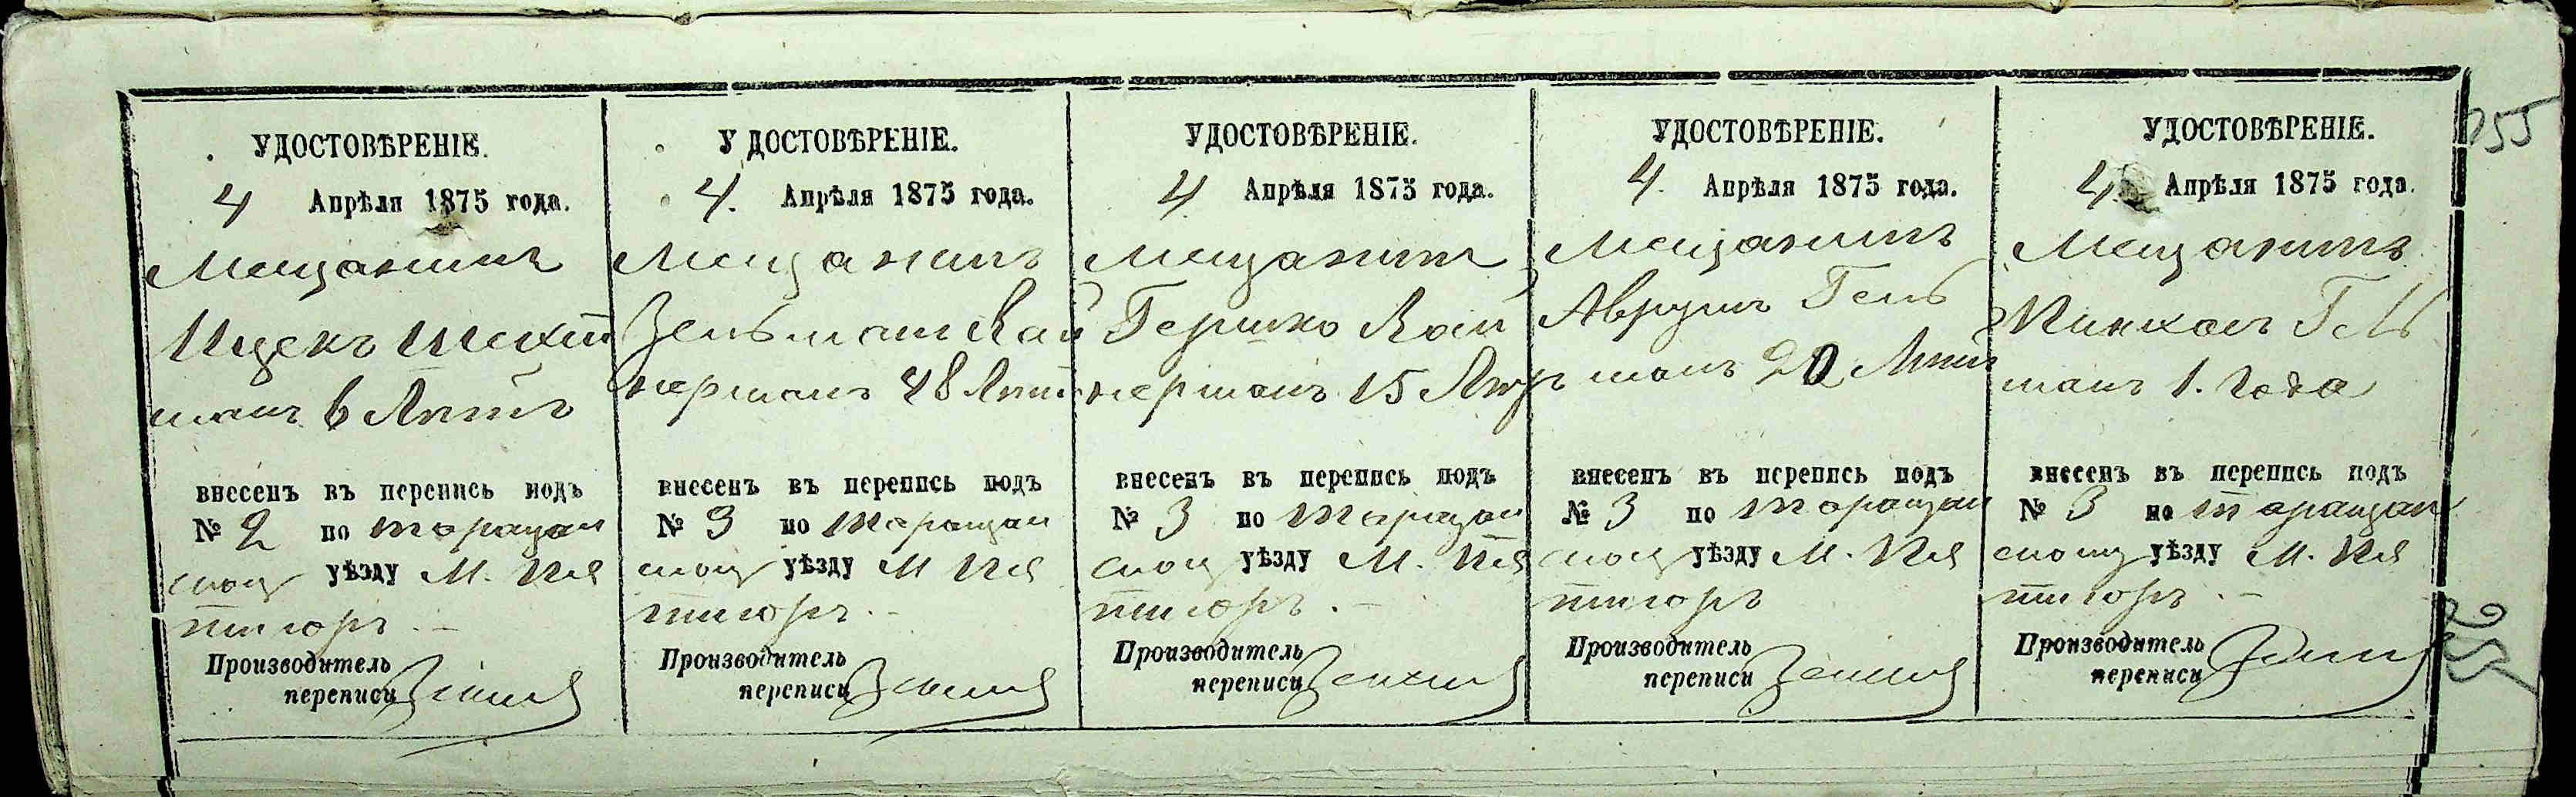 УДОСТОВѢРЕНІЕ.
4 Апрѣля 1875 года.
Мещанинъ
Ицекъ Шехт
манъ 6 Лѣтъ
внесенъ въ перепись подъ
№ 2 по Таращан
скому уѣзду М. Пя
тигоръ.
Производитель
переписи
УДОСТОВѢРЕНІЕ.
4. Апрѣля 1875 года.
Мещанинъ
Зельман
керманъ 48 Лѣтъ
внесенъ въ перепись подъ
№ 3 по Таращан
скому уѣзду М Пя
тигоръ.
Производитель
переписи
УДОСТОВѢРЕНІЕ.
4 Апрѣля 1875 года.
Мещанинъ
Гершко
керманъ 15 Лѣтъ
внесенъ въ перепись подъ
№ 3 по Таращан
скому уѣзду М. Пя
тигоръ.
Производитель
переписи
УДОСТОВѢРЕНІЕ.
4. Апрѣля 1875 года.
Мещанинъ
Аврумъ Гель
манъ 20 Лѣтъ
внесенъ въ перепись подъ
№ 3 по Таращан
скому уѣзду М. Пя
тигоръ
Производитель
переписи
УДОСТОВѢРЕНІЕ.
4. Апрѣля 1875 года.
Мещанинъ
Пинхасъ Гель
манъ 1. Года
внесенъ въ перепись подъ
№ 3 по Таращан
скому уѣзду М. Пя
тигоръ.
Производитель
переписи
255